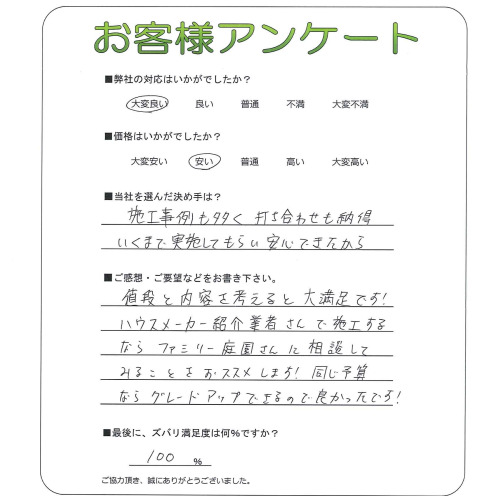 お客様アンケート
■弊社の対応はいかがでしたか？
大変良い 良い 普通 不満 大変不満
■価格はいかがでしたか？
大変安い 安い 普通 高い 大変高い
■当社を選んだ決め手は？
施工事例も多く 打ち合わせも納得
いくまで実施してもらい安心できたから
■ご感想・ご要望などをお書き下さい。
値段と内容を考えると大満足です!
ハウスメーカー紹介業者さんで施工する
なら ファミリー庭園さんに相談して
みることをおススメします! 同じ予算
なら グレードアップできるので良かったです!
■最後に、ズバリ満足度は何％ですか？
100 ％
ご協力頂き、誠にありがとうございました。